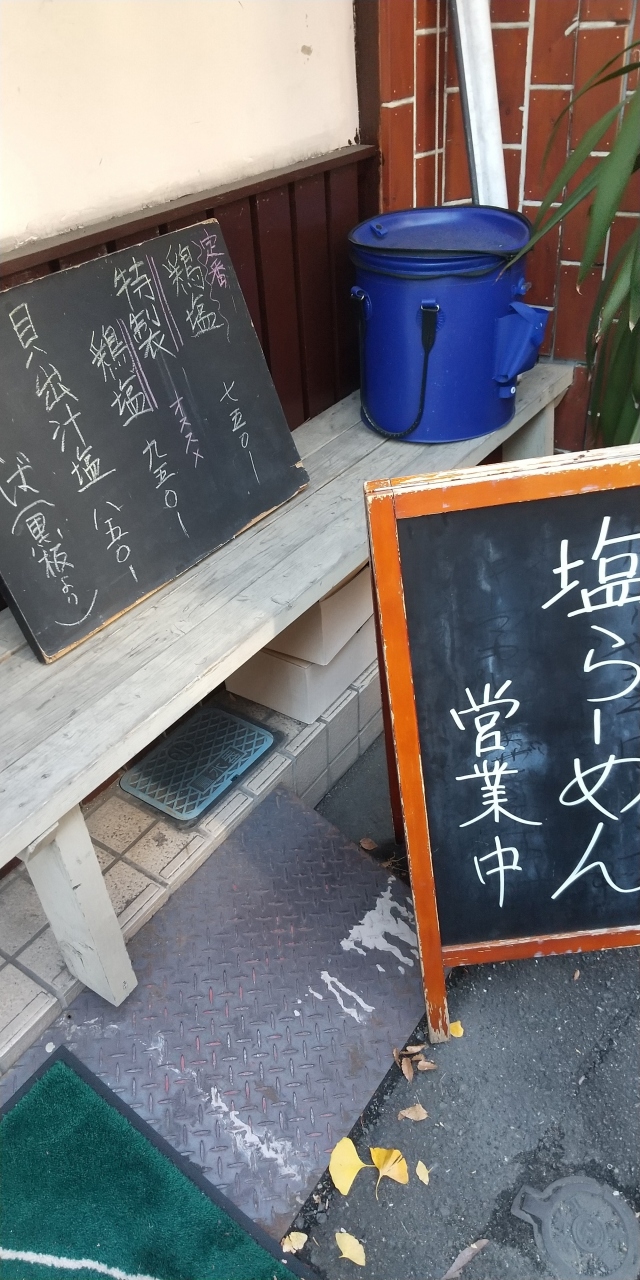 定番
鶏塩 七五〇ー
特製
鶏塩 九五〇ー
オススメ
貝出汁塩 八五〇ー
そば(黒板より)
塩らーめん
営業中